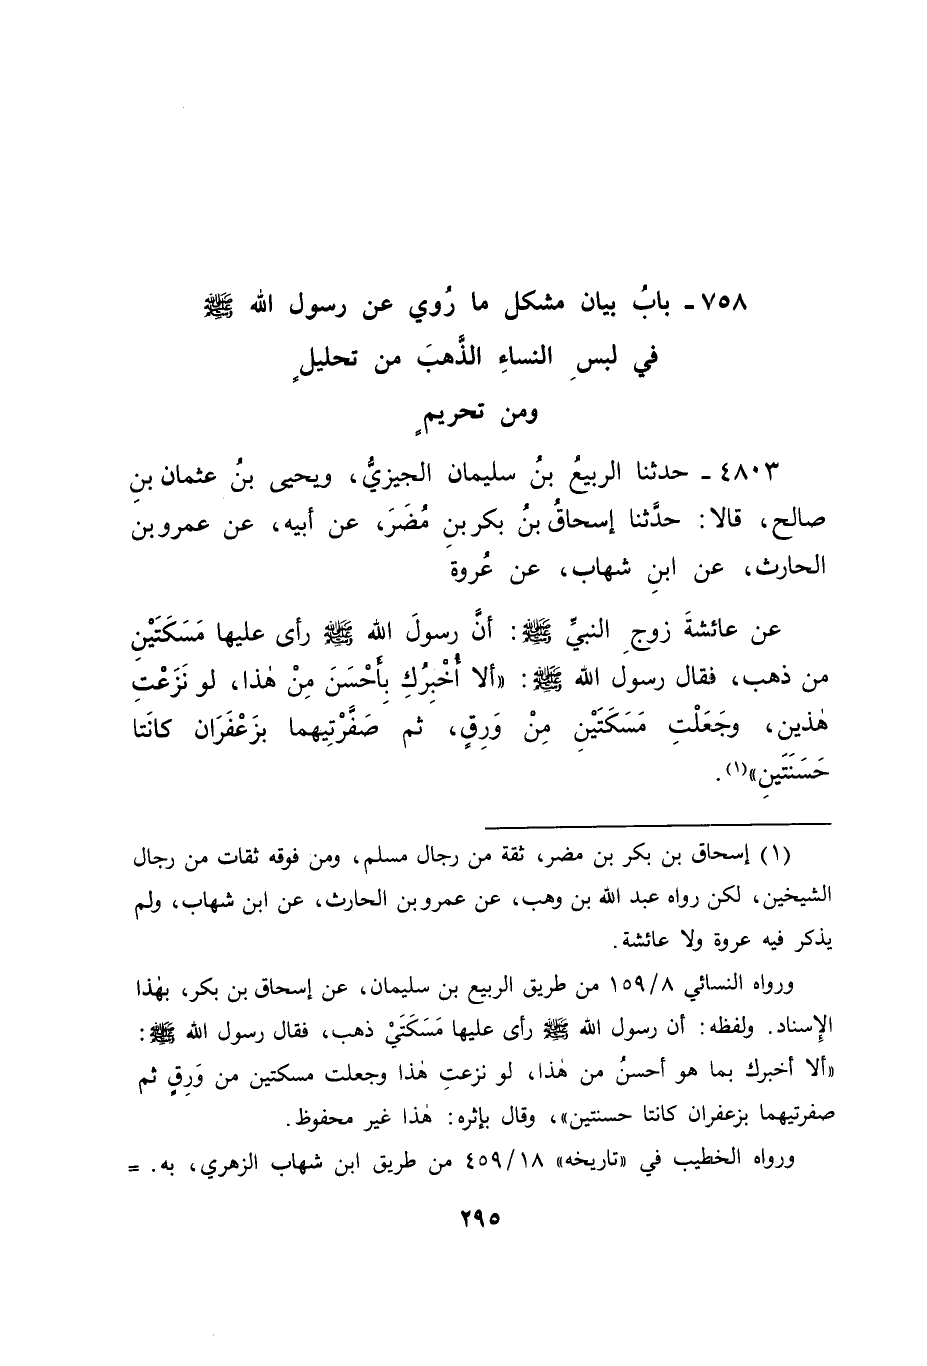 ٧٥٨ ـ بابُ بيان مشكل ما رُوي عن رسول الله ﷺ
في لبسِ النساءِ الذَّهبَ من تحليلٍ
ومن تحريمٍ
٤٨٠٣ ـ حدثنا الربيعُ بنُ سليمان الجيزيُّ، ويحيى بنُ عثمان بنِ
صالح، قالا: حدَّثنا إسحاقُ بنُ بكر بنِ مُضَرَ، عن أبيه، عن عمرو بن
الحارث، عن ابنِ شهاب، عن عُروة
عن عائشةَ زوجِ النبيِّ ﷺ: أنَّ رسولَ الله ﷺ رأى عليها مَسَكَتَيْنِ
من ذهب، فقال رسول الله ﷺ: «ألا أُخْبِرُكِ بِأَحْسَنَ مِنْ هٰذا، لو نَزَعْتِ
هٰذين، وجَعَلْتِ مَسَكَتَيْنِ مِنْ وَرِقٍ، ثم صَفَّرْتِيهما بزَعْفَرَان كانَتا
حَسَنَتَينِ»(١).
(١) إسحاق بن بكر بن مضر، ثقة من رجال مسلم، ومن فوقه ثقات من رجال
الشيخين، لكن رواه عبد الله بن وهب، عن عمرو بن الحارث، عن ابن شهاب، ولم
يذكر فيه عروة ولا عائشة.
ورواه النسائي ١٥٩/٨ من طريق الربيع بن سليمان، عن إسحاق بن بكر، بهٰذا
الإِسناد. ولفظه: أن رسول الله ﷺ رأى عليها مَسَكَتَيْ ذهب، فقال رسول الله ﷺ:
«ألا أخبرك بما هو أحسنُ من هٰذا، لو نزعتِ هٰذا وجعلت مسكتين من وَرِقٍ ثم
صفرتيهما بزعفران كانتا حسنتين»، وقال بإثره: هٰذا غير محفوظ.
ورواه الخطيب في «تاريخه» ٤٥٩/١٨ من طريق ابن شهاب الزهري، به. =
٢٩٥